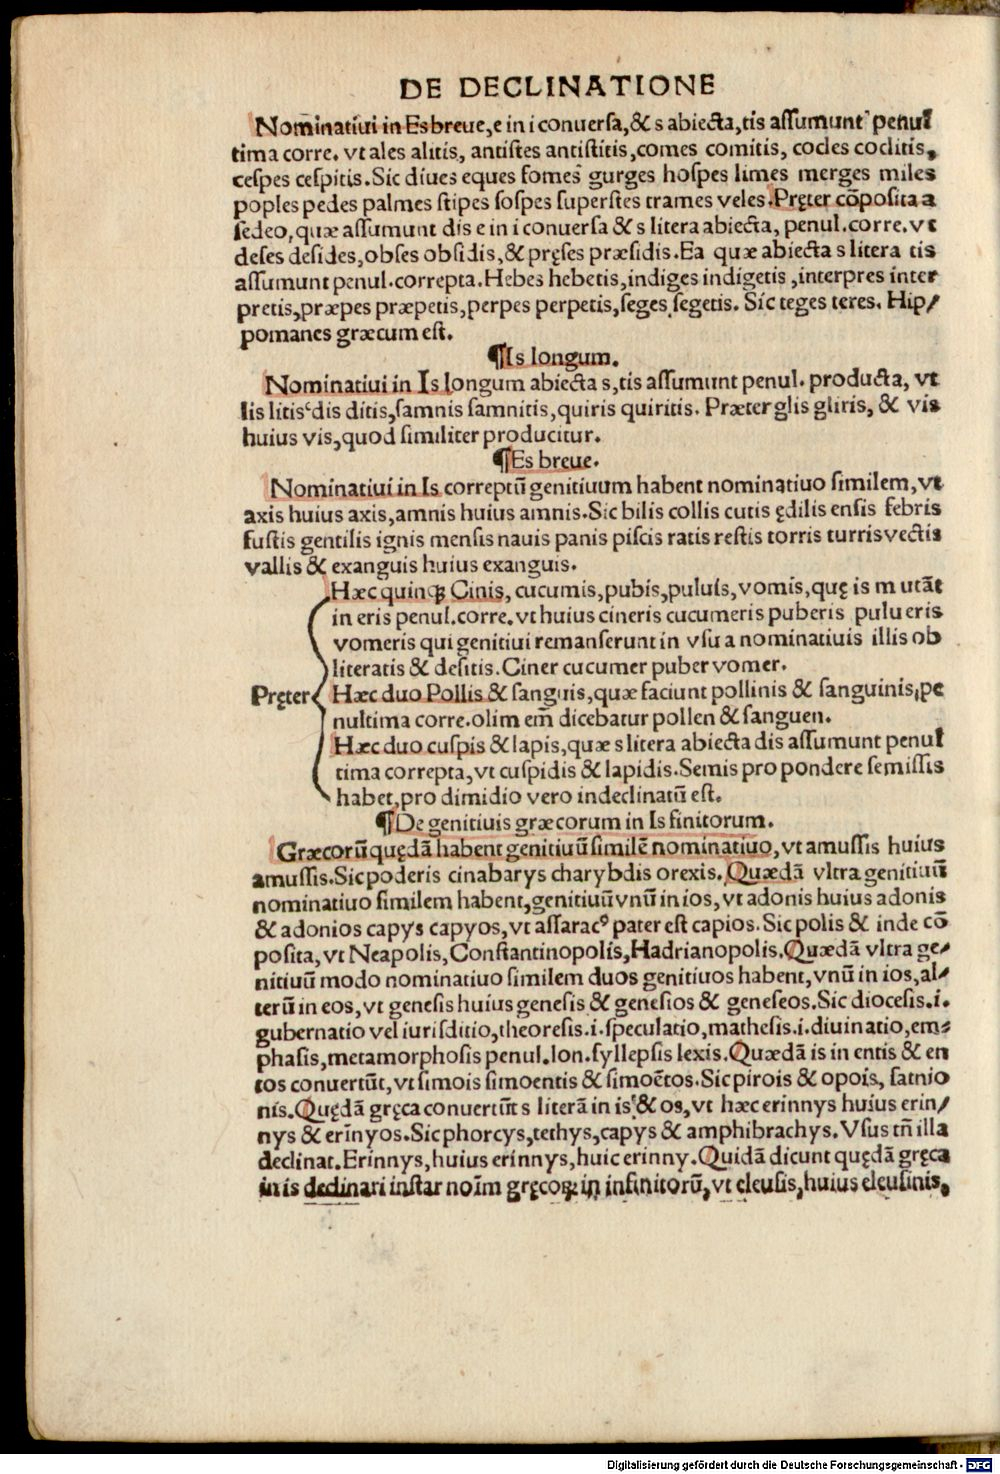 DE DECLINATIONE
Nominatiui in Es breue, e in i conuersa, & s abiecta, tis aſſumunt penul
tima corre. vt ales alitis, antiſtes antiſtitis, comes comitis, cocles coclitis,
ceſpes ceſpitis. Sic diues eques fomes gurges hoſpes limes merges miles
poples pedes palmes ſtipes ſoſpes ſuperſtes trames veles. Pręter cõpoſita a
ſedeo, quæ aſſumunt dis e in i conuerſa & s litera abiecta, penul. corre. vt
deſes deſides, obſes obſidis, & pręſes præſidis. Ea quæ abiecta s litera tis
aſſumunt penul. correpta. Hebes hebetis, indiges indigetis, interpres inter
pretis, præpes præpetis, perpes perpetis, ſeges ſegetis. Sic teges teres. Hip/
pomanes græcum eſt.
¶Is longum.
Nominatiui in Is longum abiecta s, tis aſſumunt penul. producta, vt
lis litis dis ditis, ſamnis ſamnitis, quiris quiritis. Præter glis gliris, & vis
huius vis, quod ſimiliter producitur.
¶Es breue.
Nominatiui in Is correptũ genitiuum habent nominatiuo ſimilem, vt
axis huius axis, amnis huius amnis. Sic bilis collis cutis ędilis enſis febris
fuſtis gentilis ignis menſis nauis panis piſcis ratis reſtis torris turris vectis
vallis & exanguis huius exanguis.
Hæc quinqꝫ Cinis, cucumis, pubis, puluis, vomis, quę is m utãt
in eris penul. corre. vt huius cineris cucumeris puberis pulueris
vomeris qui genitiui remanſerunt in vſu a nominatiuis illis ob
literatis & deſitis. Ciner cucumer puber vomer.
Pręter Hæc duo Pollis & ſanguis, quæ faciunt pollinis & ſanguinis, pe
nultima corre. olim em̃ dicebatur pollen & ſanguen.
Hæc duo cuſpis & lapis, quæ s litera abiecta dis aſſumunt penul
tima correpta, vt cuſpidis & lapidis. Semis pro pondere ſemiſſis
habet, pro dimidio vero indeclinatũ eſt.
¶De genitiuis græcorum in Is finitorum.
Græcorũ quędã habent genitiuũ ſimilẽ nominatiuo, vt amuſſis huius
amuſſis. Sic poderis cinabarys charybdis orexis. Quædã vltra genitiuũ
nominatiuo ſimilem habent, genitiuũ vnũ in ios, vt adonis huius adonis
& adonios capys capyos, vt aſſaracꝰ pater eſt capios. Sic polis & inde cõ
poſita, vt Neapolis, Conſtantinopolis, Hadrianopolis. Quædã vltra ge/
nitiuũ modo nominatiuo ſimilem duos genitiuos habent, vnũ in ios, al/
terũ in eos, vt geneſis huius geneſis & geneſios & geneſeos. Sic dioceſis. i.
gubernatio vel iuriſditio, theoreſis. i. ſpeculatio, matheſis. i. diuinatio, em/
phaſis, metamorphoſis penul. lon. ſyllepſis lexis. Quædã is in entis & en
tos conuertũt, vt ſimois ſimoentis & ſimoẽtos. Sic pirois & opois, ſatnio
nis. Quędã gręca conuertũt s literã in is, & os, vt hæc erinnys huius erin/
nys & erĩnyos. Sic phorcys, tethys, capys & amphibrachys. Vſus tñ illa
declinat. Erinnys, huius erinnys, huic erinny. Quidã dicunt quędã gręca
in is declinari inſtar noĩm gręcoꝝ in infinitorũ, vt eleuſis, huius eleuſinis,
Digitalisierung gefördert durch die Deutsche Forschungsgemeinschaft - DFG